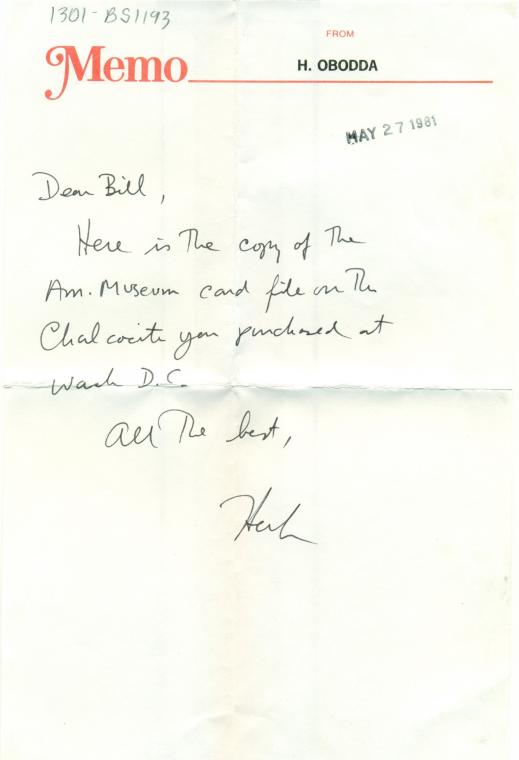 1301-BS1193
FROM
Memo
H. OBODDA
MAY 27 1981
Dear Bill,
Here is The copy of The
Am. Museum card file on The
Chalcocite you purchased at
Wash D.C.
All The best,
Herb